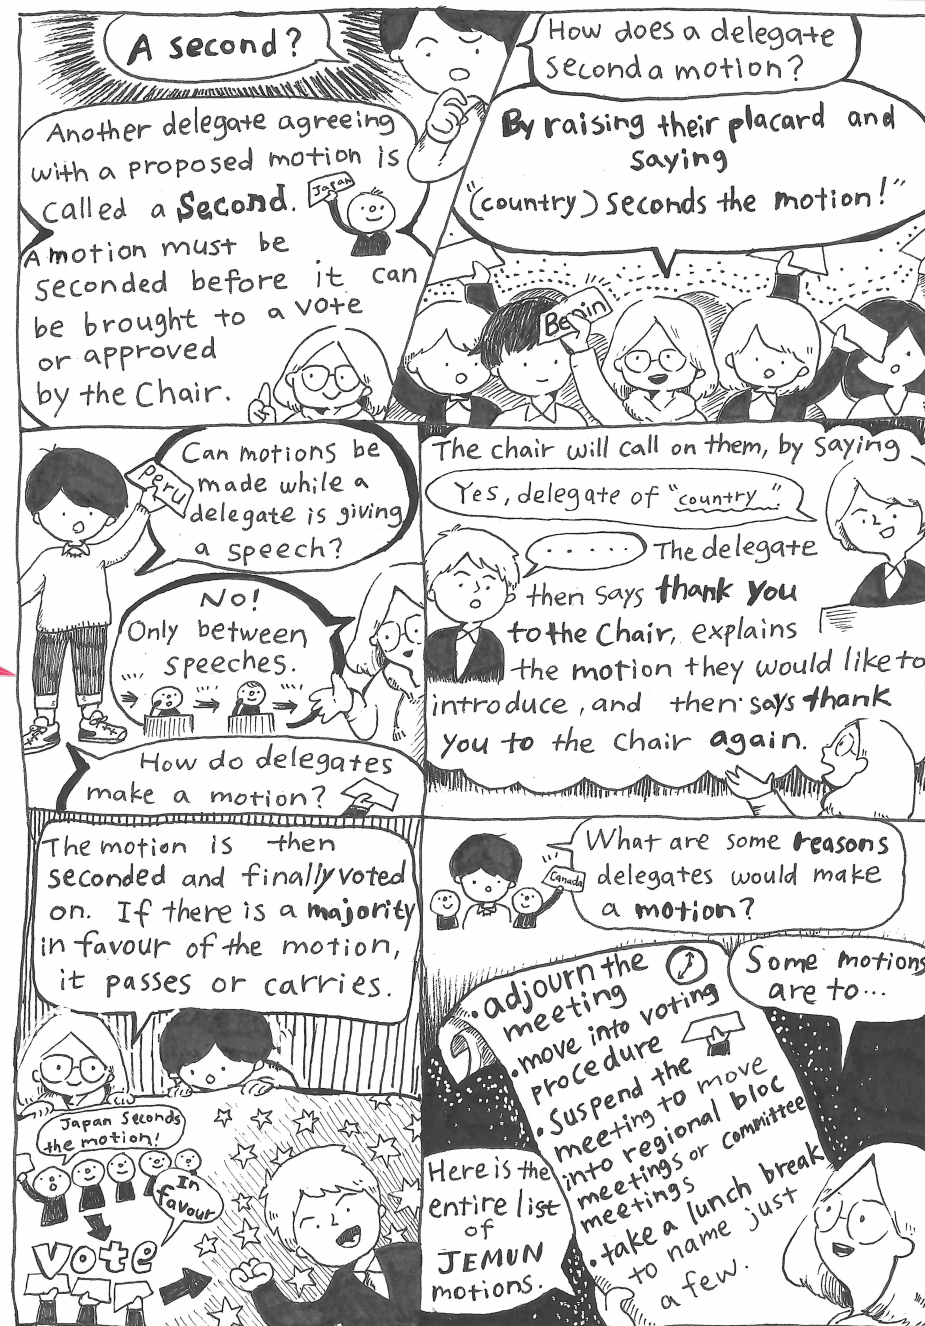 A second?
Another delegate agreeing
with a proposed motion is
called a Second.
Japan
A motion must be
seconded before it can
be brought to a vote
or approved
by the Chair.
How does a delegate
second a motion?
By raising their placard and
saying
"(country) seconds the motion!"
Benin
Can motions be
made while a
delegate is giving
a speech?
Peru
No!
Only between
speeches.
How do delegates
make a motion?
The chair will call on them, by saying
Yes, delegate of "country"
.....
The delegate
then says thank you
to the Chair, explains
the motion they would like to
introduce, and then says thank
you to the Chair again.
The motion is then
seconded and finally voted
on. If there is a majority
in favour of the motion,
it passes or carries.
Japan Seconds
the motion!
In
favour
Vote
What are some reasons
delegates would make
a motion?
Canada
Some motions
are to...
• adjourn the
meeting
• move into voting
procedure
• Suspend the
meeting to move
into regional bloc
meetings or committee
meetings
• take a lunch break
to name just
a few.
Here is the
entire list
of
JEMUN
motions.